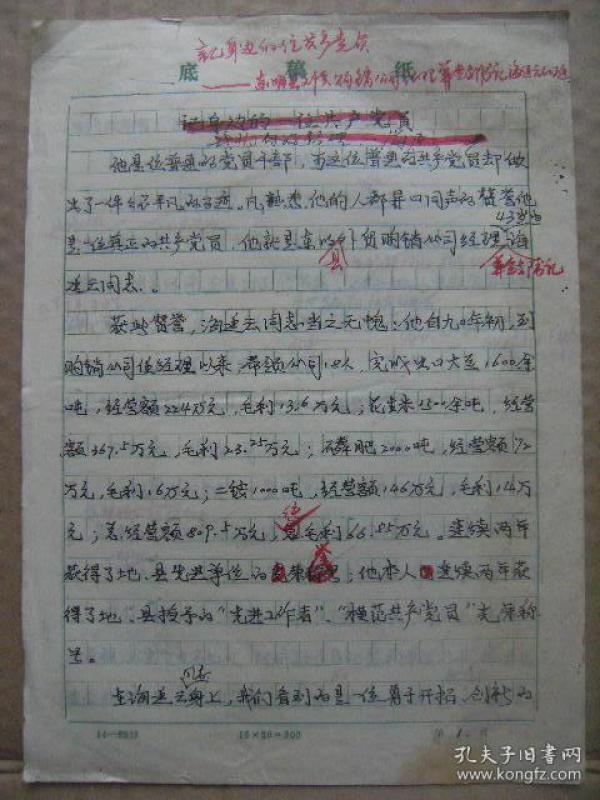 记身边的一位共产党员
底 稿 纸
记身边的一位共产党员
他是位普通的党员干部,而这位普通的共产党员却做
出了一件件不平凡的事迹。凡熟悉他的人都异口同声的赞誉他
43岁的
是一位真正的共产党员,他就是东明县外贸购销公司经理
县
兼支部书记
连云同志。
获此赞誉,海连云同志当之无愧:他自九〇年初,到
购销公司任经理以来,带领公司18人,完成出口大豆1600余
吨,经营额224万元,毛利13.6万元;花生米1500余吨,经营
额367.5万元,毛利23.25万元;磷肥2000吨,经营额72
万元,毛利16万元;二铵1000吨,经营额146万元,毛利14万
元;总经营额809.5万元,总毛利66.85万元。连续两年
获得了地、县先进单位的;他本人连续两年获
得了地、县授予的“先进工作者”、“模范共产党员”光荣称
号。
同志
在海连云身上,我们看到的是一位勇于开拓、创新的
15×20=300
第 1 页
孔夫子旧书网
www.kongfz.com